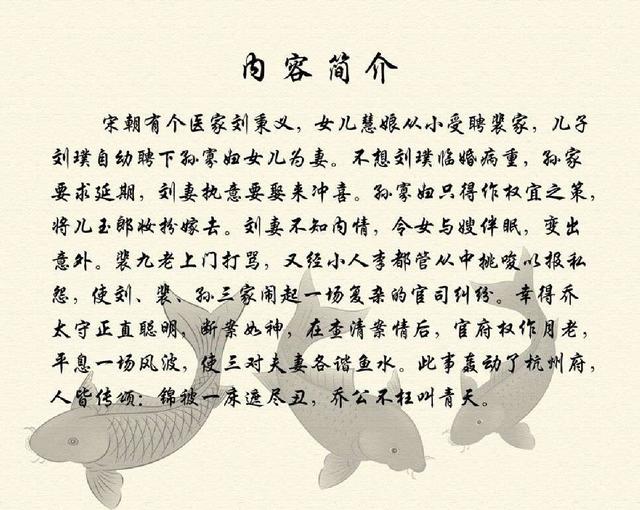 内容简介
宋朝有个医家刘秉义，女儿慧娘从小受聘裴家，儿子
刘璞自幼聘下孙寡妇女儿为妻。不想刘璞临婚病重，孙家
要求延期，刘妻执意要娶来冲喜。孙寡妇只得作权宜之策，
将儿玉郎妆扮嫁去。刘妻不知内情，令女与嫂伴眠，变出
意外。裴九老上门打骂，又经小人李都管从中挑唆以报私
怨，使刘、裴、孙三家闹起一场复杂的官司纠纷。幸得乔
太守正直聪明，断案如神，在查清案情后，官府权作月老，
平息一场风波，使三对夫妻各谐鱼水。此事轰动了杭州府，
人皆传颂：锦被一床遮尽丑，乔公不枉叫青天。